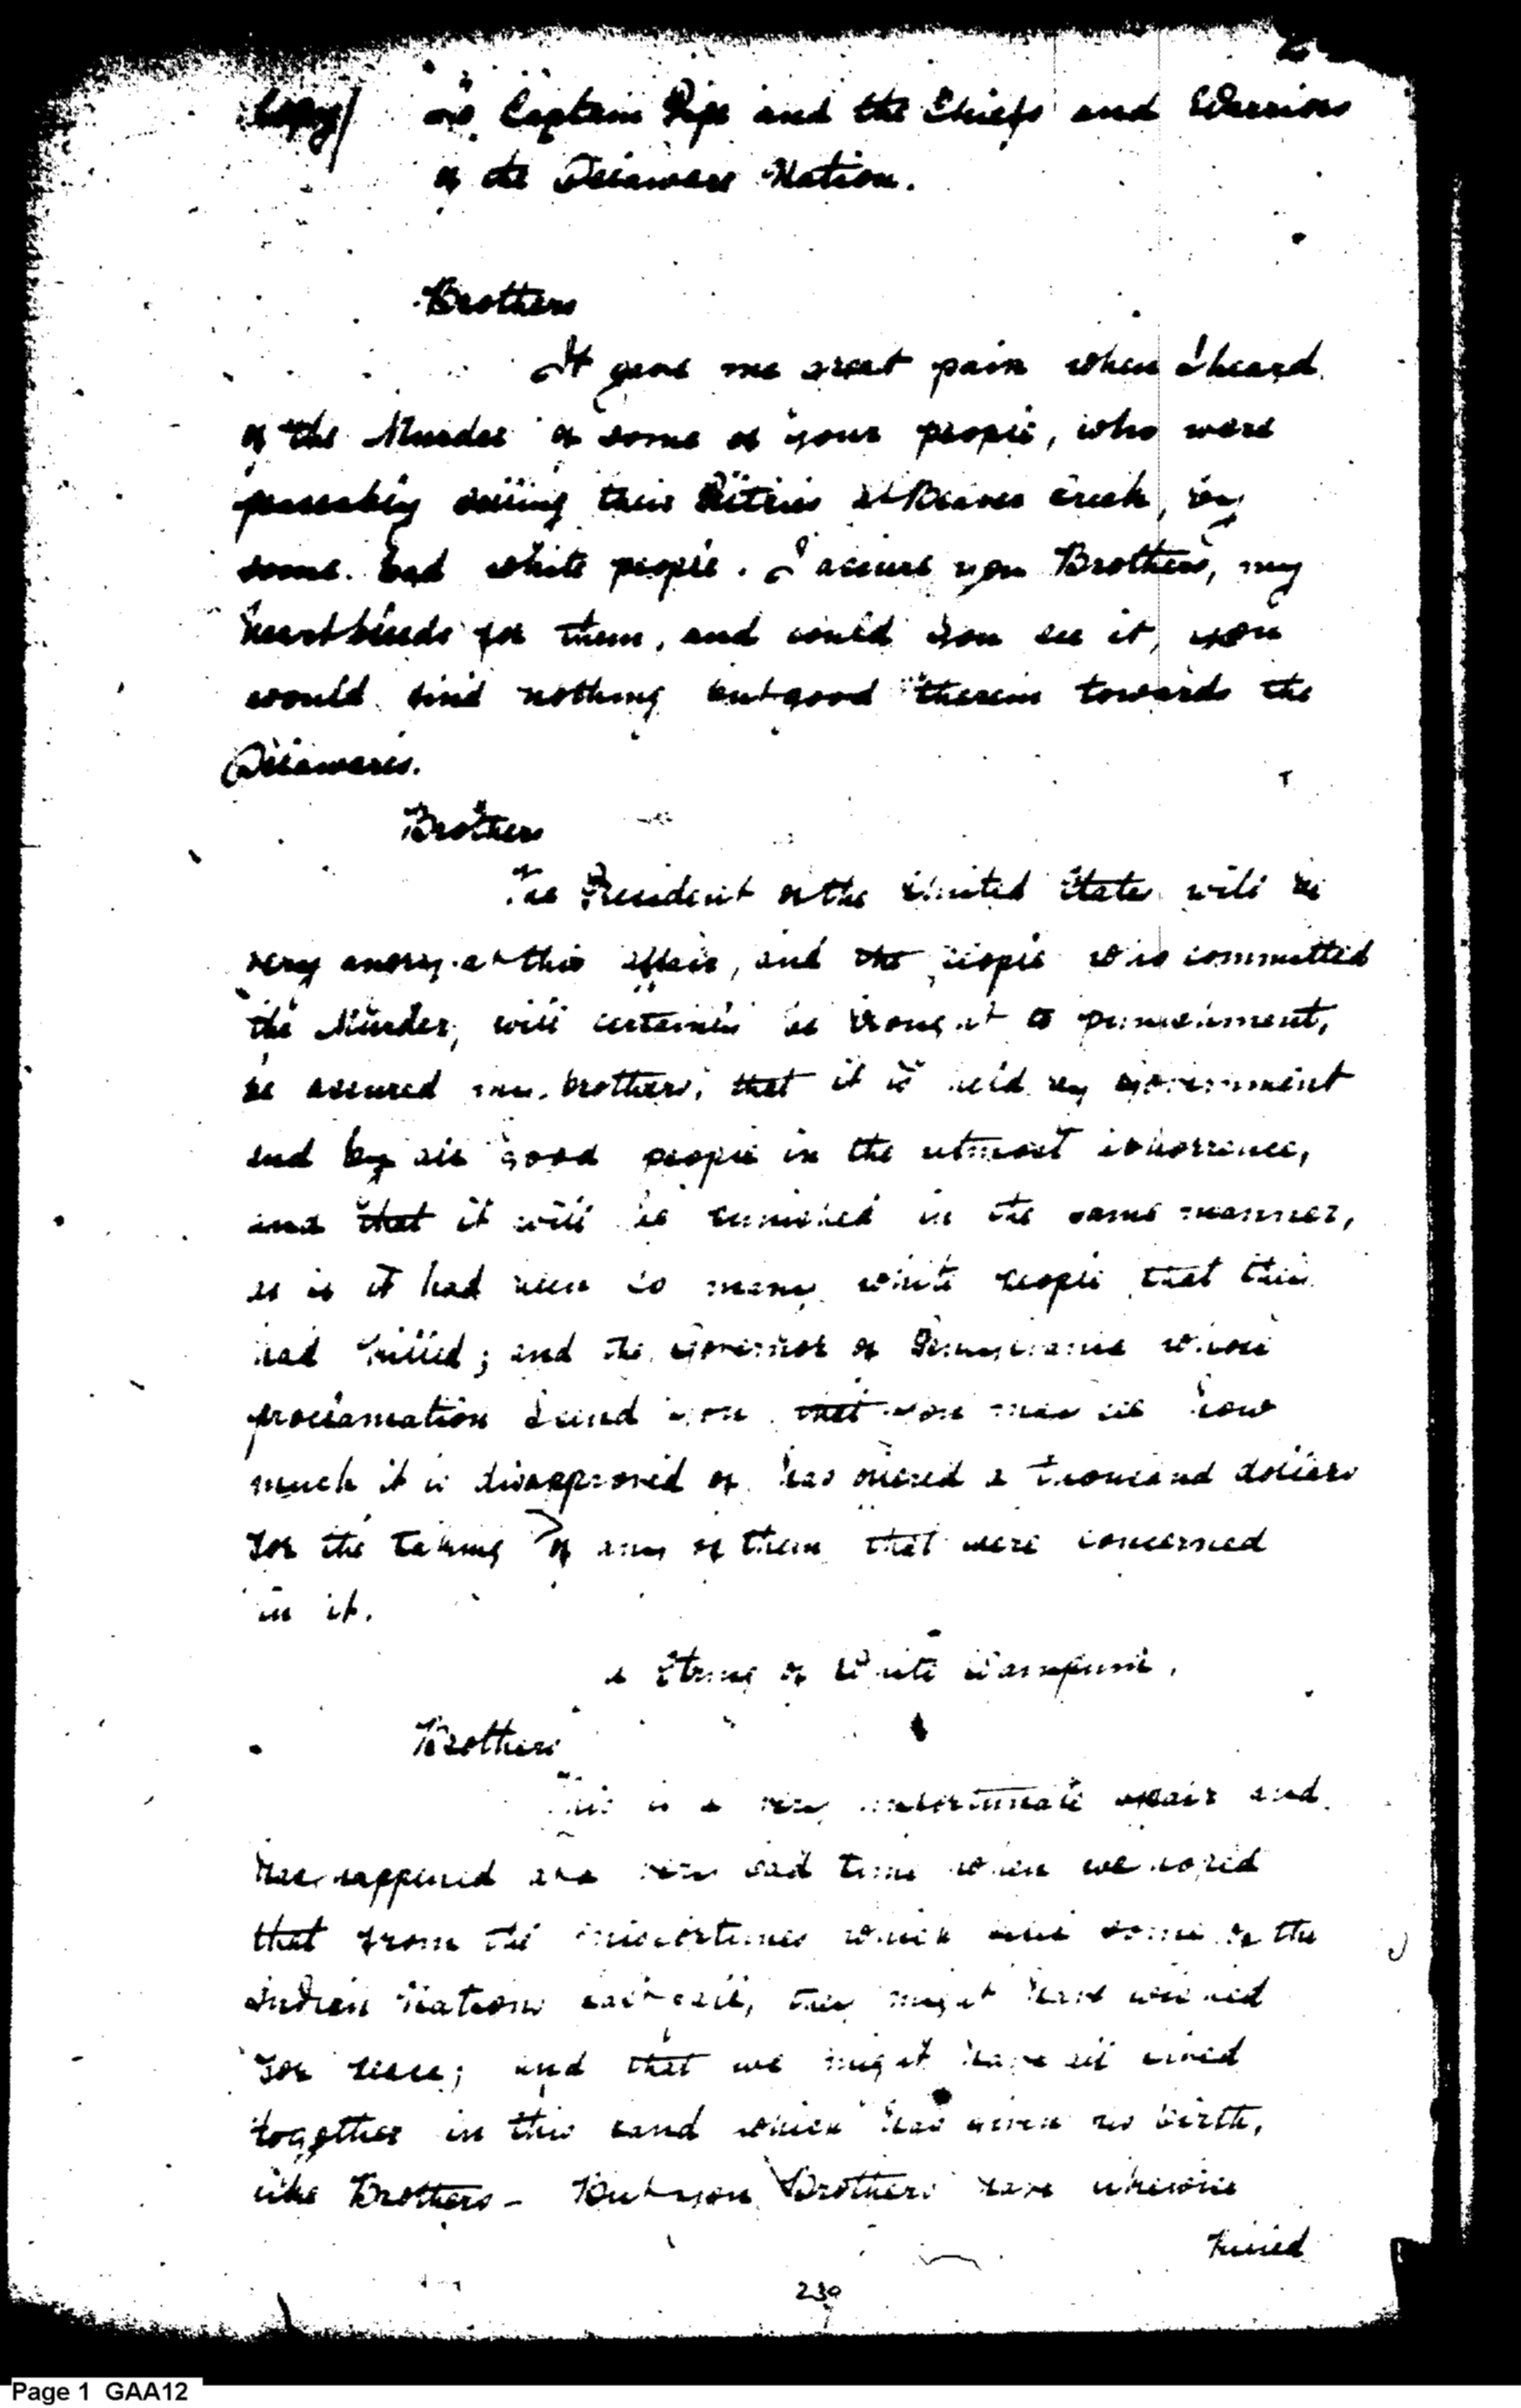 Copy/ To Captain Pipe and the Chiefs and Warriors
of the Delaware Nation.
Brothers
It gave me great pain when I heard
of the Murder of some of your people, who were
peaceably selling their Peltries at Beaver Creek, by
some bad white people. I assure you Brothers, my
heart bleeds for them, and could you see it, you
would find nothing but good therein towards the
Delawares.
Brothers
The President of the United States will be
very angry at this affair, and the people who committed
the Murder, will certainly be brought to punishment,
be assured my brothers, that it is held by government
and by all good people in the utmost abhorrence,
and that it will be punished in the same manner,
as if it had been so many white people that they
had killed; and the Governor of Pennsylvania whose
proclamation I send you that you may see how
much it is disapproved of has offered a thousand dollars
for the taking of any of them that were concerned
in it.
a String of White Wampum.
Brothers
This is a very unfortunate affair and
has happened at a very bad time when we hoped
that from the misfortunes which some of the
Indian Nations they might have wished
for peace; and that we might have all lived
together in this land which has given us birth,
like Brothers - But you Brothers have likewise
killed
239
Page 1 GAA12